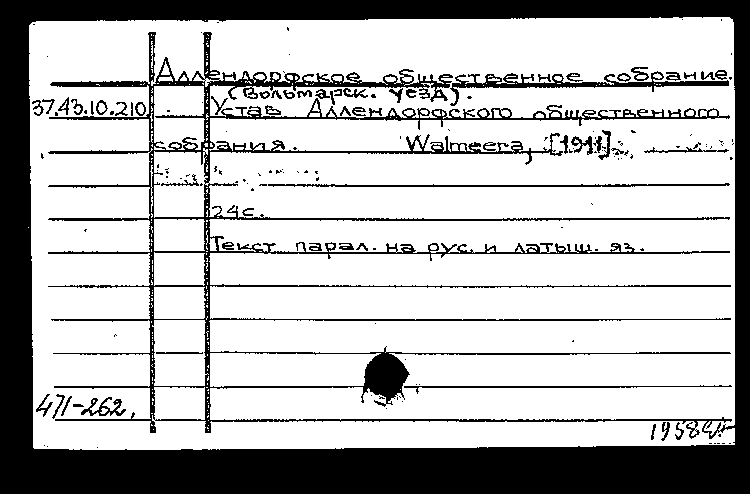 Аллендорфское общественное собрание.
(Вольмарск. уезд).
37.43.10.210. Устав Аллендорфского общественного
собрания. Walmeera, [1911].
24с.
Текст парал. на рус. и латыш. яз.
471-262.
1958